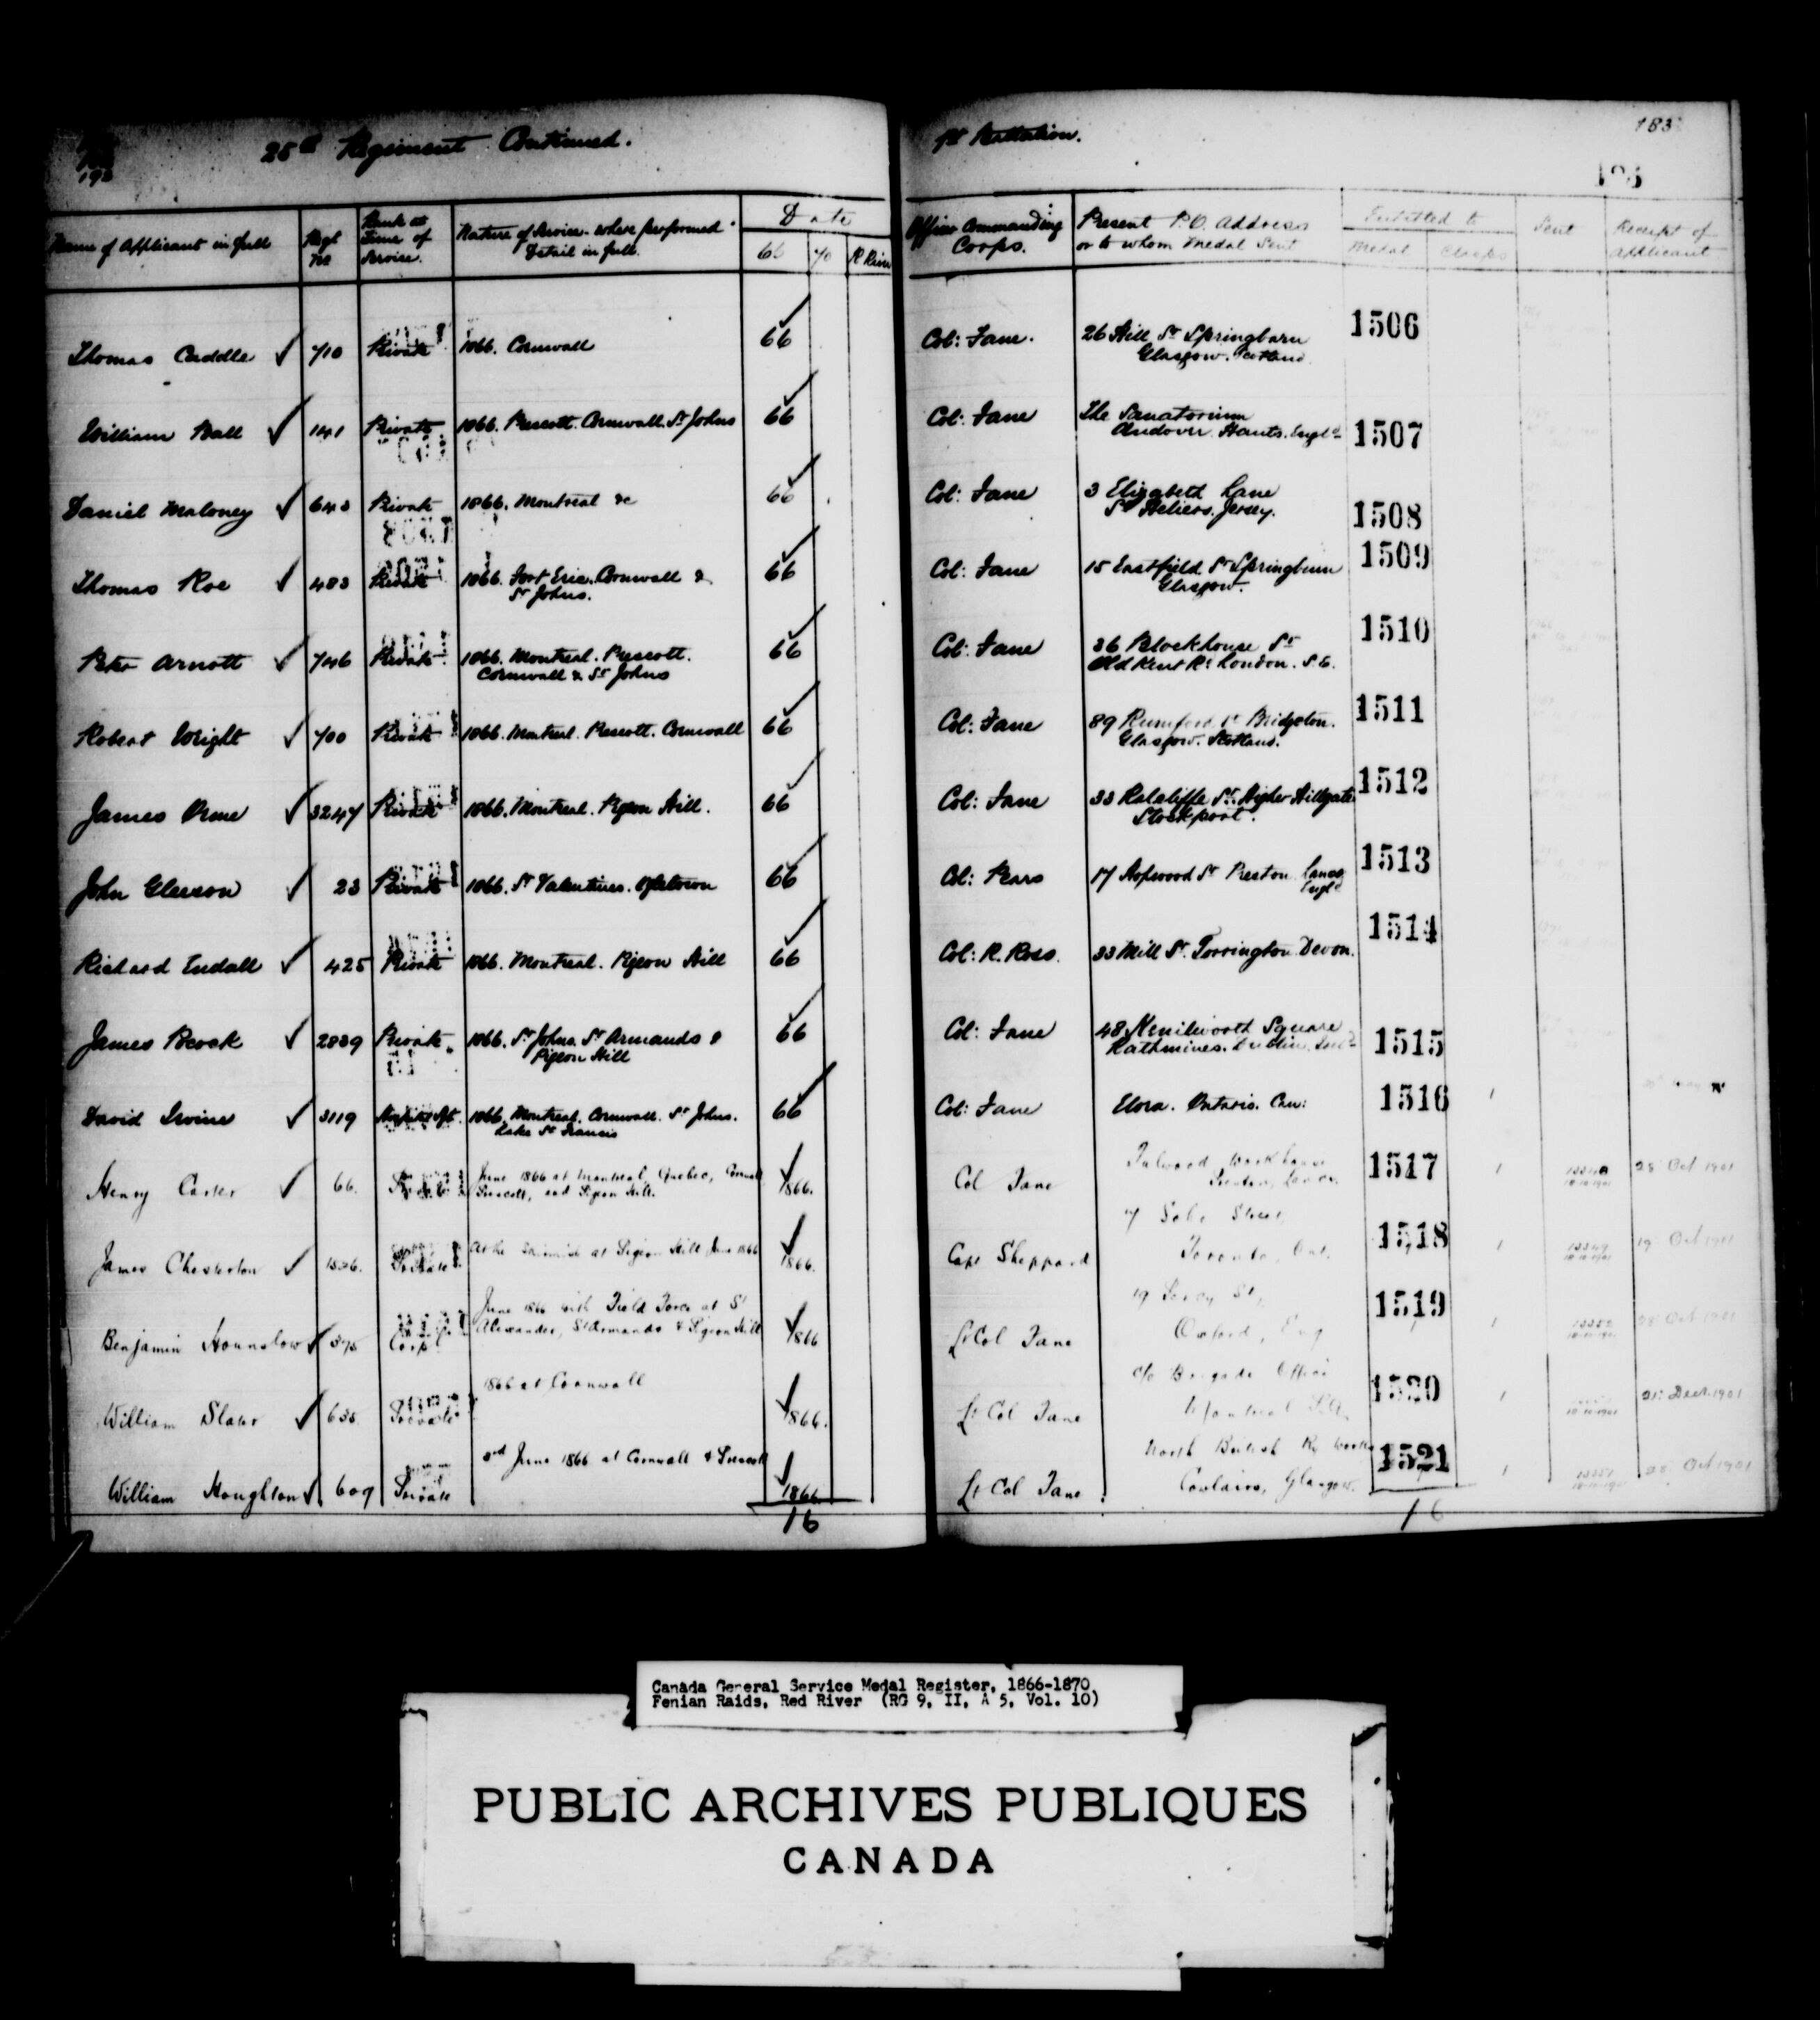 25th Regiment Continued.
1st Battalion.
183
193
Name of Applicant in full
Regt No
Rank at Time of Service.
Nature of Service where performed Detail in full.
Date
66
70
R River
Officer Commanding Corps.
Present P.O. Address or to whom Medal Sent
Entitled to
Medal
Clasps
Sent
Receipt of Applicant
Thomas Caddle 710 Private 1866. Cornwall 66 Col: Fane. 26 Hill St Springburn 1506
Glasgow. Scotland
William Ball 141 Private 1866. Prescott. Cornwall. St Johns 66 Col: Fane The Sanatorium 1507
Andover. Hants. Engld
Daniel Maloney 643 Private 1866. Montreal &c 66 Col: Fane 3 Elizabeth Lane 1508
St Heliers. Jersey.
Thomas Roe 483 Private 1866. Fort Erie. Cornwall & 66 Col: Fane 15 Eastfield St Springburn 1509
St Johns. Glasgow.
Peter Arnott 746 Private 1866. Montreal. Prescott. 66 Col: Fane 36 Blockhouse St 1510
Cornwall & St Johns Old Kent Rd London. S.E.
Robert Wright 700 Private 1866. Montreal. Prescott. Cornwall 66 Col: Fane 89 Rumford St Bridgeton. 1511
Glasgow. Scotland.
James Orme 3247 Private 1866. Montreal. Pigeon Hill. 66 Col: Fane 33 Ratcliffe St. Higher Hillgate 1512
Stockport.
John Gleeson 23 Private 1866. St Valentines. 66 Col: Pears 17 Hopwood St Preston Lancs 1513
Engld
Richard Endall 425 Private 1866. Montreal. Pigeon Hill 66 Col: R. Ross. 33 Mill St. Torrington Devon. 1514
James Bcock 2839 Private 1866. St Johns. St Armands & 66 Col: Fane 48 Kenilworth Square 1515
Pigeon Hill Rathmines. Dublin.
David Irvine 3119 1866. Montreal. Cornwall. St Johns. 66 Col: Fane Elora. Ontario. Can: 1516
Lake St Francis
Henry Carter 66. Private June 1866 at Montreal, Quebec, Cornwall 1866. Col Fane Fulwood Workhouse 1517 1 28 Oct 1901
Prescott, and Pigeon Hill. Preston, Lancs.
James Chesterton 1526. Private At the Skirmish at Pigeon Hill June 1866 1866. Capt Sheppard 7 Soho Street 1518 1 19 Oct 1901
Toronto, Ont.
Benjamin Hounslow 575 Corpl June 1866 with Field Force at St 1866 Lt Col Fane 19 St, 1519 1 28 Oct 1901
Alexander, St Armands & Pigeon Hill Oxford, Eng
William Slater 635 Private 1866 at Cornwall 1866. Lt Col Fane c/o Brigade Office 1520 1 21 Decr 1901
Montreal P.Q.
William Houghton 609 Private 2nd June 1866 at Cornwall & Prescott 1866. Lt Col Fane North British Ry Works 1521 1 28 Oct 1901
Cowlairs, Glasgow.
16
16
Canada General Service Medal Register, 1866-1870
Fenian Raids, Red River (RG 9, II, A 5, Vol. 10)
PUBLIC ARCHIVES PUBLIQUES
CANADA